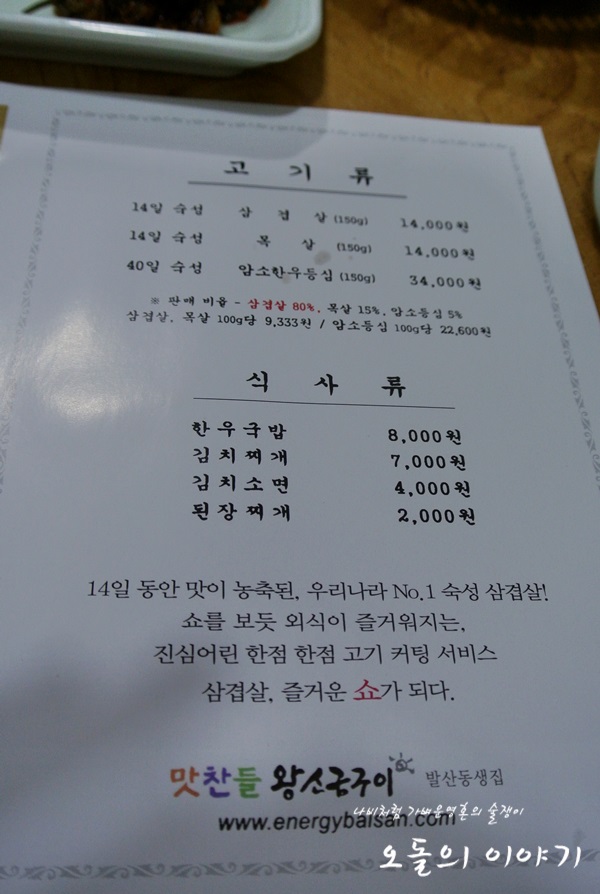 고기류
14일 숙성 삼겹살 (150g) 14,000원
14일 숙성 목살 (150g) 14,000원
40일 숙성 암소한우등심 (150g) 34,000원
※ 판매 비율 - 삼겹살 80%, 목살 15%, 암소등심 5%
삼겹살, 목살 100g당 9,333원 / 암소등심 100g당 22,600원
식사류
한우국밥 8,000원
김치찌개 7,000원
김치소면 4,000원
된장찌개 2,000원
14일 동안 맛이 농축된, 우리나라 No.1 숙성 삼겹살!
쇼를 보듯 외식이 즐거워지는,
진심어린 한점 한점 고기 커팅 서비스
삼겹살, 즐거운 쇼가 되다.
맛찬들 왕소금구이 발산동생집
나비처럼 가벼운영혼의 술쟁이
www.energybalsan.com
오돌의 이야기